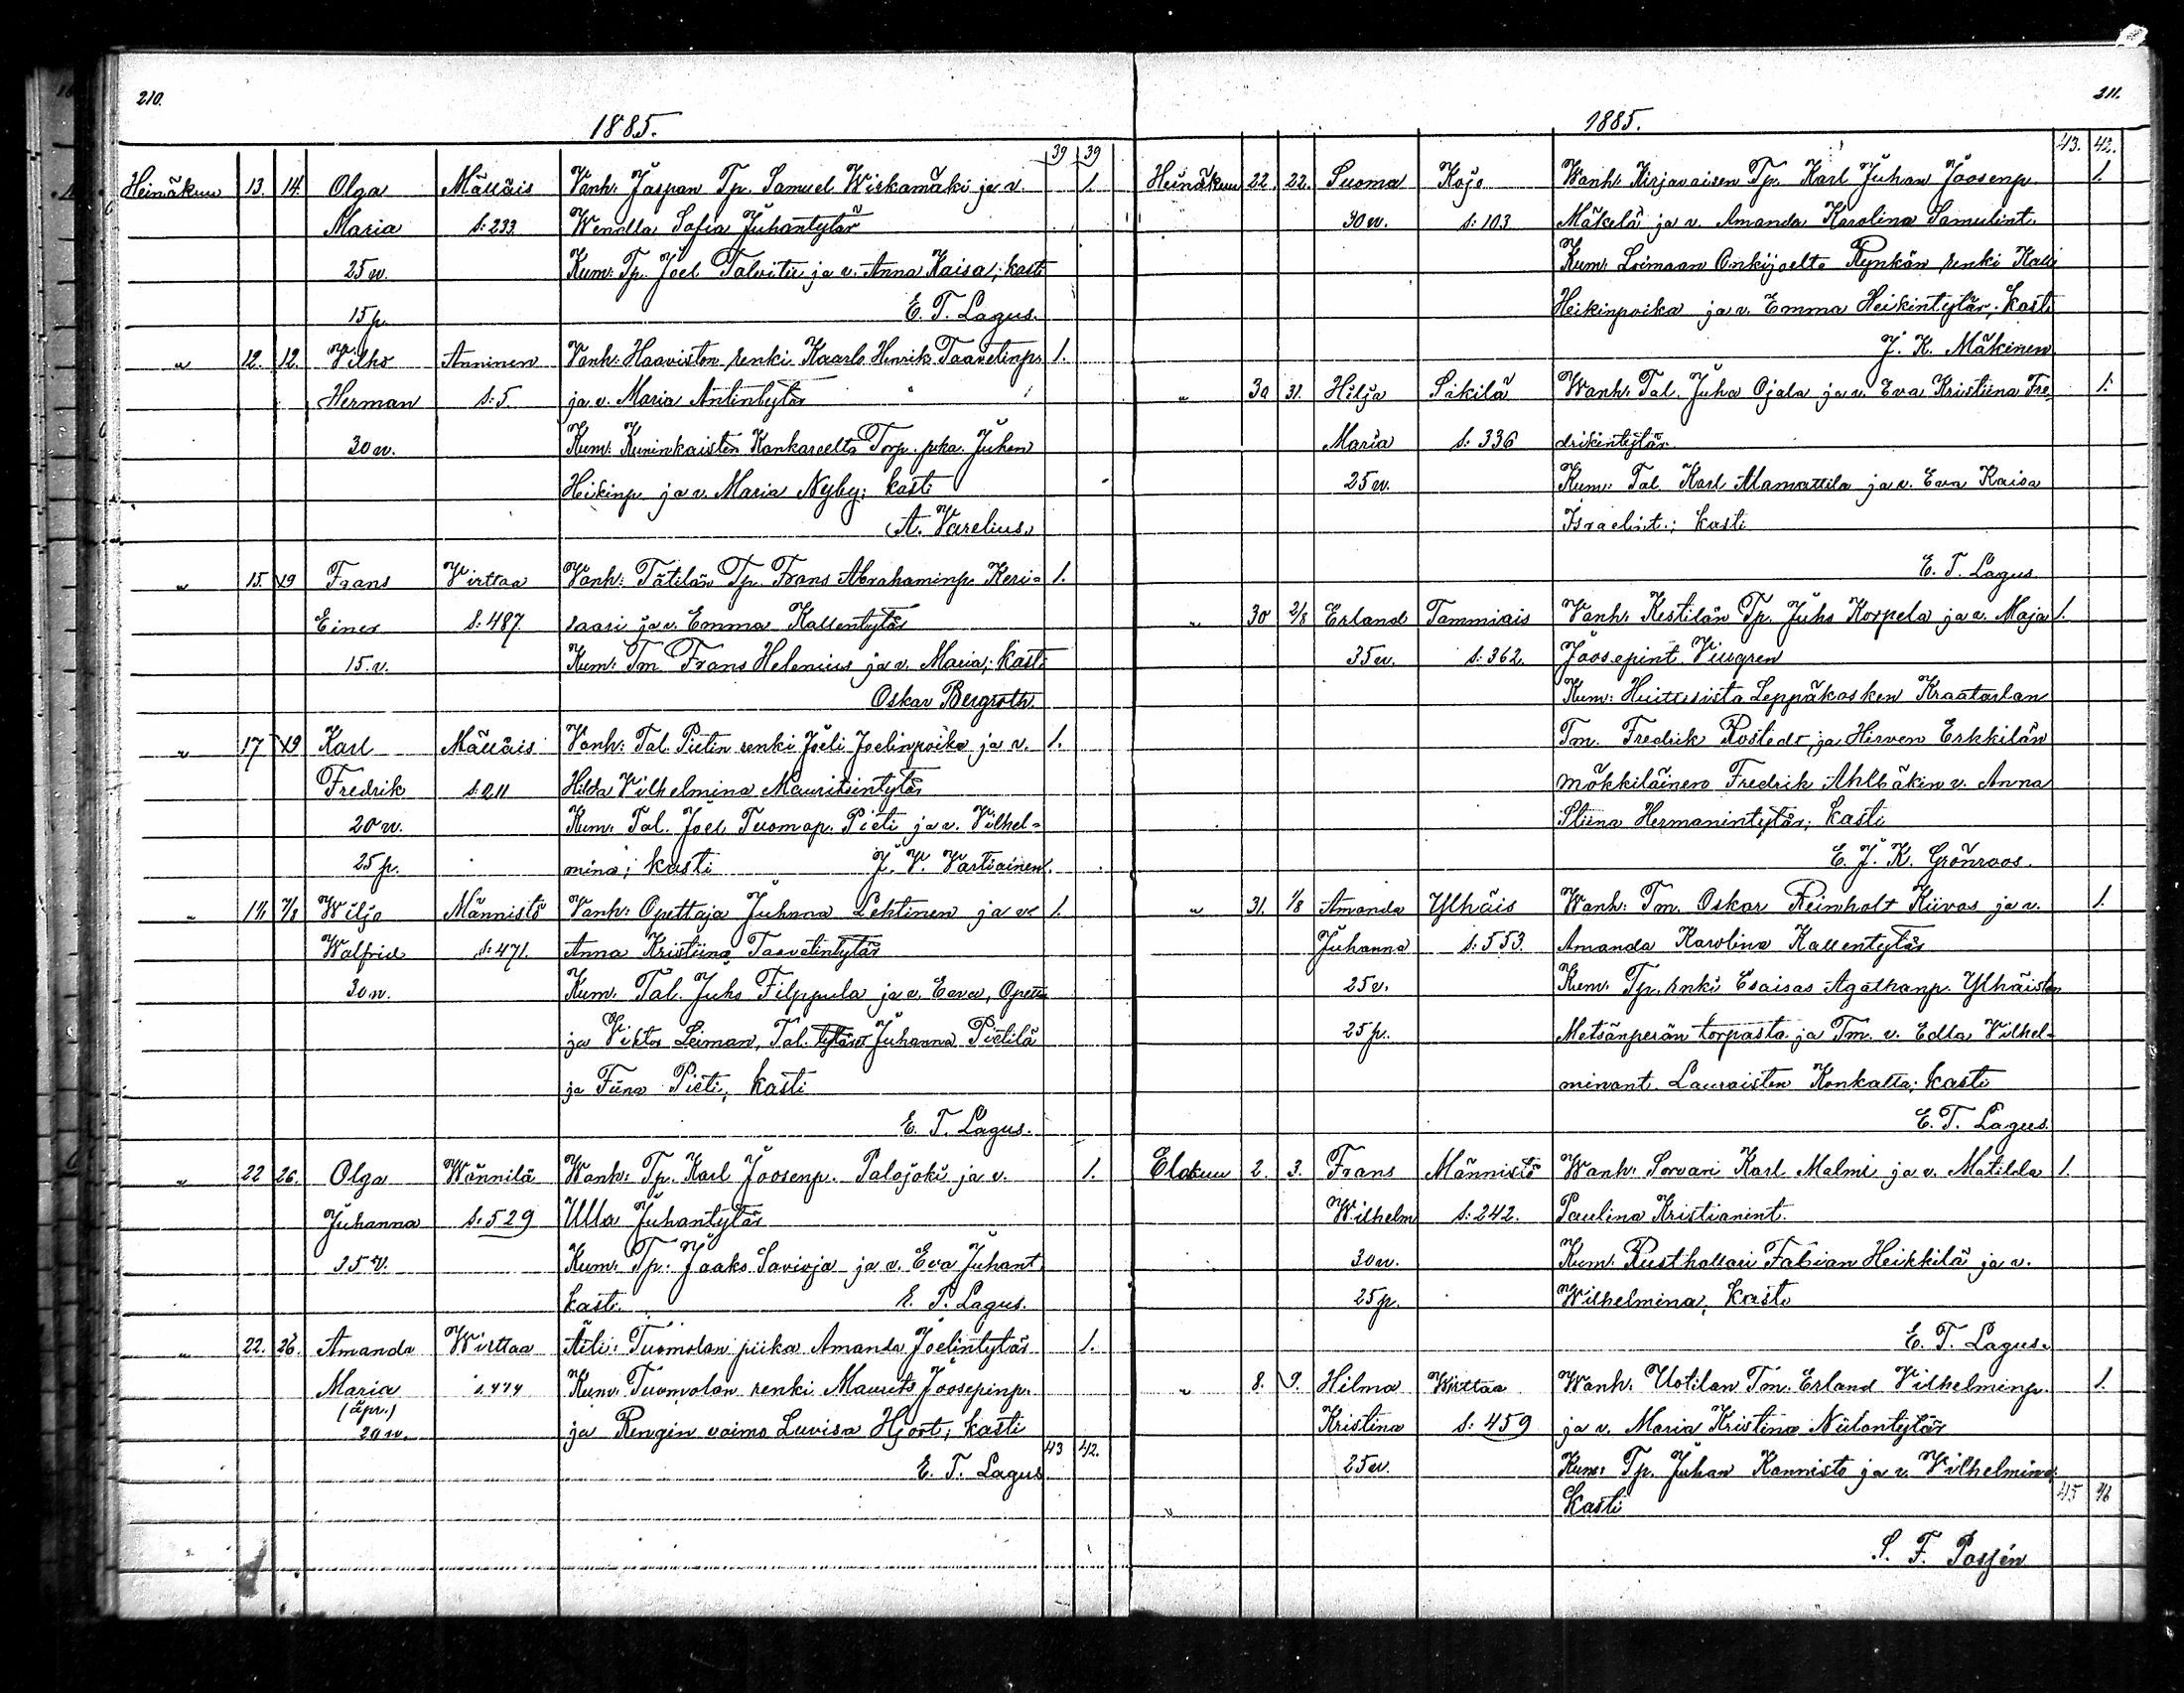 210.
1885.
39 39
Heinäkuu 13. 14. Olga Mälläis Vanh: Jaspan Tp. Samuel Wiskamäki ja v. 1.
Maria S: 233. Wendla Sofia Juhantytär
25 v. Kum: Tp. Joel Talvitie ja v. Anna Kaisa; kasti
15 p. E. T. Lagus.
" 12. 12. Vilho Anninen Vanh: Haaviston renki Kaarlo Henrik Taavetinp. 1.
Herman S: 5. ja v. Maria Antintytär
30 v. Kum: Kuninkaisten Kankareelta Torp. pka. Juhan
Heikinp. ja v. Maria Nyby; kasti
A. Varelius.
" 15. 19 Frans Virttaa Vanh: Tätilän Tp. Frans Abrahaminp. Keri- 1.
Einar S: 487. saari ja v. Emma Kallentytär
15. v. Kum: Tm Frans Helenius ja v. Maria; kasti
Oskar Bergroth.
" 17 19 Karl Mälläis Vanh: Tal. Pietin renki Joeli Joelinpoika ja v. 1.
Fredrik S: 211 Hilda Vilhelmina Mauritsintytär
20 v. Kum: Tal. Joel Tuomap. Pieti ja v. Vilhel-
25 p. mina; kasti J. V. Vartiainen.
" 14 7/8 Wiljo Männistö Vanh: Opettaja Juhana Lehtinen ja v. 1.
Walfrid S: 471. Anna Kristiina Taavetintytär
30 v. Kum: Tal. Juho Filppula ja v. Eeva, Opetta
ja Viktor Leiman, Tal. tytäret Juhanna Pietilä
ja Fiina Pieti; kasti
E. T. Lagus.
" 22 26. Olga Wännilä Wanh: Tp. Karl Joosenp. Palojoki ja v. 1.
Juhanna S: 529 Ulla Juhantytär
35 v. Kum: Tp. Jaako Savioja ja v. Eva Juhant.
kasti. E. T. Lagus.
" 22. 26. Amanda Wirttaa Äiti: Tuomolan piika Amanda Joelintytär 1.
Maria S. 474 Kum: Tuomolan renki Maurits Joosepinp.
(äpr.)
20 v. ja Rengin vaimo Luvisa Hjort; kasti
43 42.
E. T. Lagus
211.
1885.
43. 42.
Heinäkuu 22. 22. Suoma Kojo Wanh: Kirjavaisen Tp. Karl Juhan Joosenp. 1.
30 v. S: 103 Mäkelä ja v. Amanda Karolina Samulint.
Kum: Loimaan Onkijoelta Rynkän renki Kalle
Heikinpoika ja v. Emma Heikintytär; Kasti
J. K. Mäkinen
" 30 31. Hilja Sikilä Wanh: Tal. Juha Ojala ja v. Eva Kristiina Fre- 1.
Maria S: 336 drikintytär
25 v. Kum: Tal. Karl Mamattila ja v. Eva Kaisa
Israelint.; kasti
E. T. Lagus
" 30 2/8 Erland Tammiais Vanh: Kestilän Tp. Juho Korpela ja v. Maja 1.
35 v. S: 362. Joosepint. Viugren
Kum: Huittisista Leppäkosken Kraatarlan
Tm. Fredrik Rostedt ja Hirven Erkkilän
mökkiläinen Fredrik Ahlbäkin v. Anna
Stiina Hermanintytär; kasti
E. J. K. Grönroos.
" 31. 1/8 Amanda Ylhäis Wanh: Tm. Oskar Reinholt Kiivas ja v. 1.
Juhanna S: 553. Amanda Karolina Kallentytär
25 v. Kum: Tp. renki Esaias Agathanp. Ylhäisten
25 p. Metsänperän torpasta ja Tm. v. Edla Vilhel-
minant. Lauroisten Konkatta; kasti
E. T. Lagus.
Elokuu 2. 3. Frans Männistö Wanh: Sorvari Karl Malmi ja v. Matilda 1.
Wilhelm S: 242. Paulina Kristianint.
30 v. Kum: Rusthollari Fabian Heikkilä ja v.
25 p. Wilhelmina, Kasti
E. T. Lagus.
" 8. 9. Hilma Wirttaa Wanh: Uotilan Tm. Erland Vilhelminp. 1.
Kristina S: 459 ja v. Maria Kristina Niilontytär
25 v. Kum: Tp. Juhan Kannisto ja v. Vilhelmina;
" Kasti 45 46
S. F. Passén